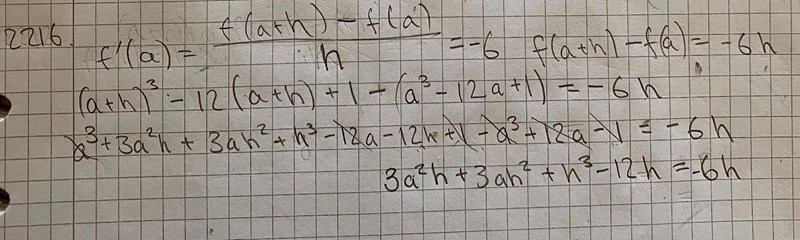 2216. f'(a) = (f(a+h) - f(a))/h = -6 f(a+h) - f(a) = -6h
(a+h)³ - 12(a+h) + 1 - (a³ - 12a + 1) = -6h
a³ + 3a²h + 3ah² + h³ - 12a - 12h + 1 - a³ + 12a - 1 = -6h
3a²h + 3ah² + h³ - 12h = -6h